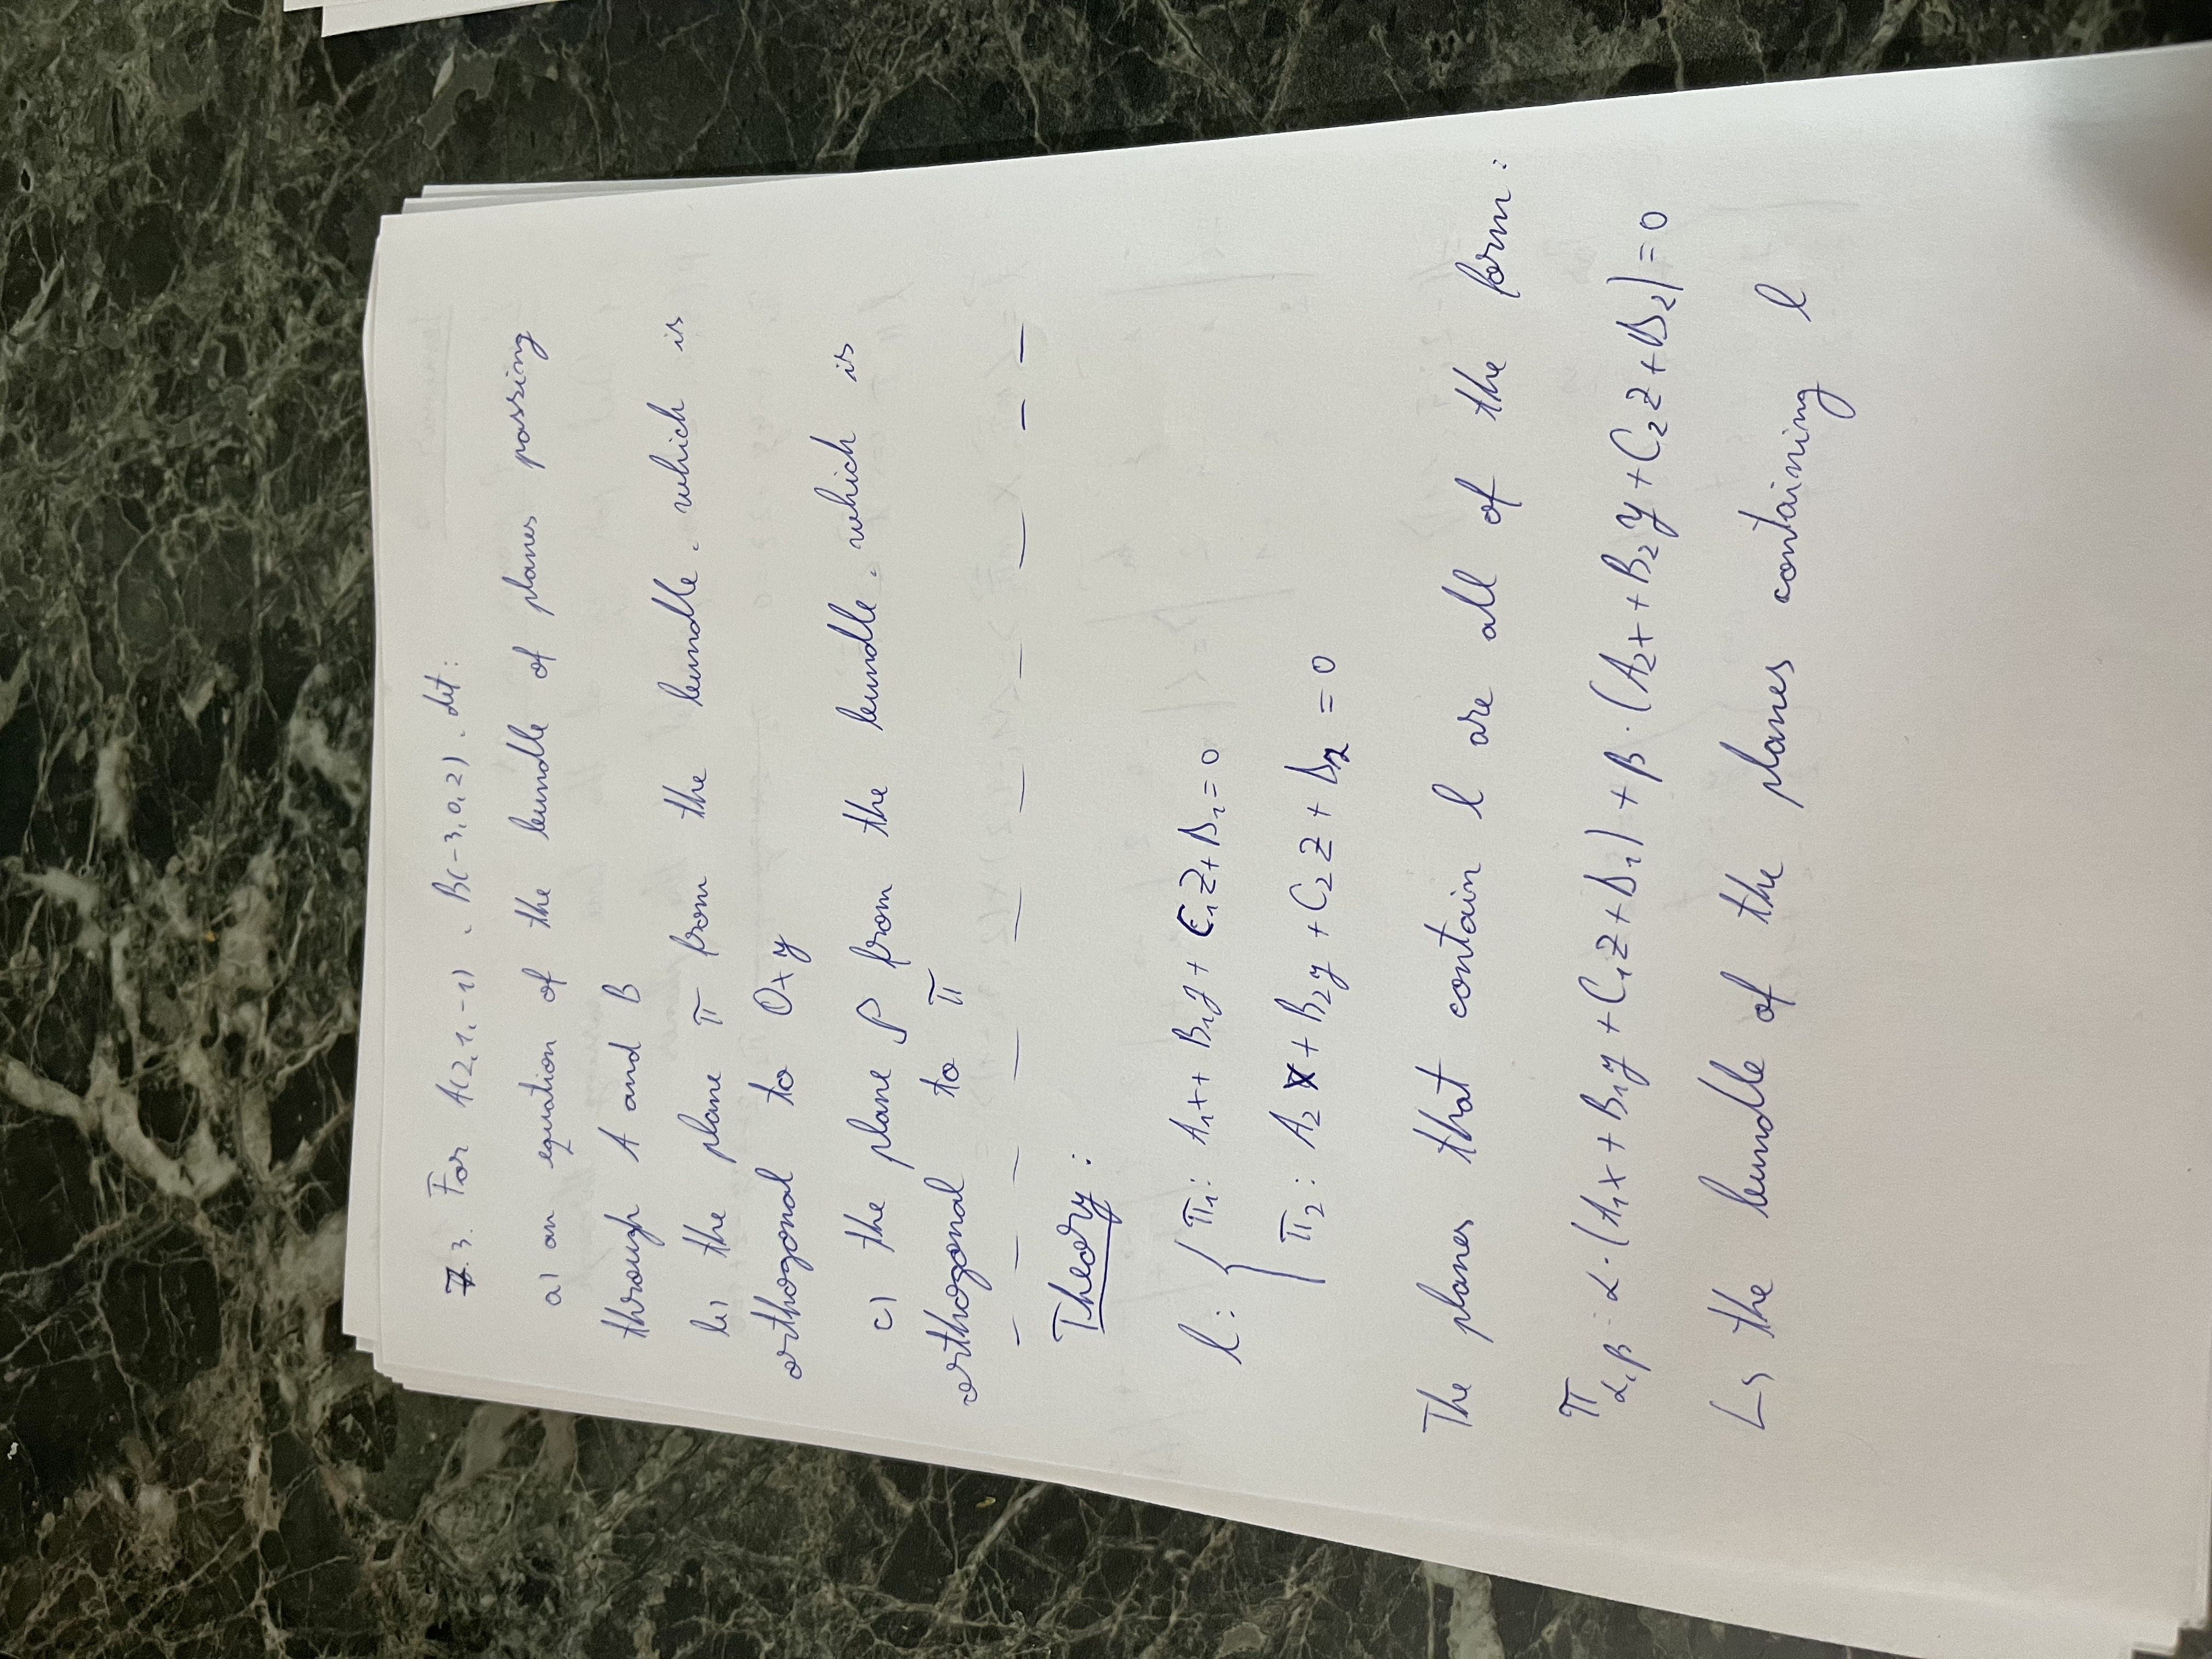 7.3. For A(2,1,-1), B(-3,0,2), det:
a) an equation of the bundle of planes passing
through A and B
b) the plane π from the bundle, which is
orthogonal to Oxy
c) the plane ρ from the bundle, which is
orthogonal to π
Theory:
l: { π₁: A₁x + B₁y + C₁z + D₁ = 0
π₂: A₂x + B₂y + C₂z + D₂ = 0
The planes that contain l are all of the form:
π α,β : α·(A₁x + B₁y + C₁z + D₁) + β·(A₂x + B₂y + C₂z + D₂) = 0
↳ the bundle of the planes containing l